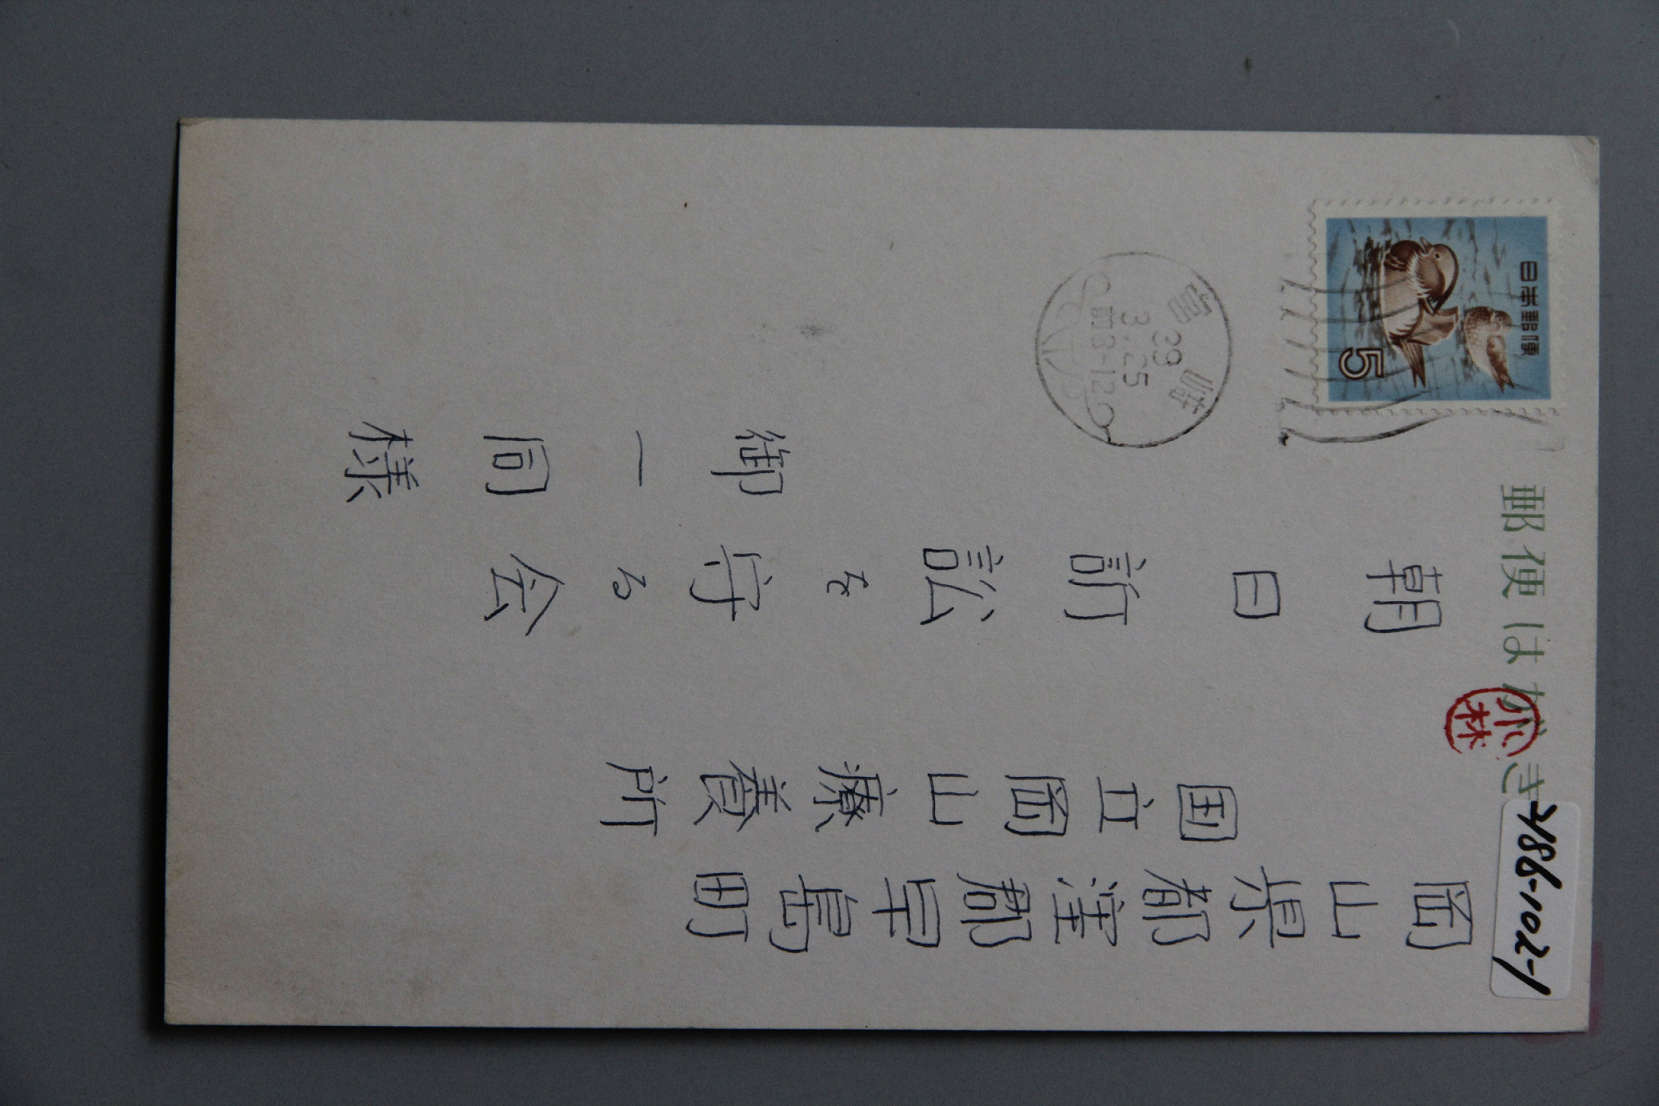 郵便はがき
日本郵便
5
39
3.25
前8-12
小林
486-102-1
岡山県都窪郡早島町
国立岡山療養所
朝日訴訟を守る会
御一同様